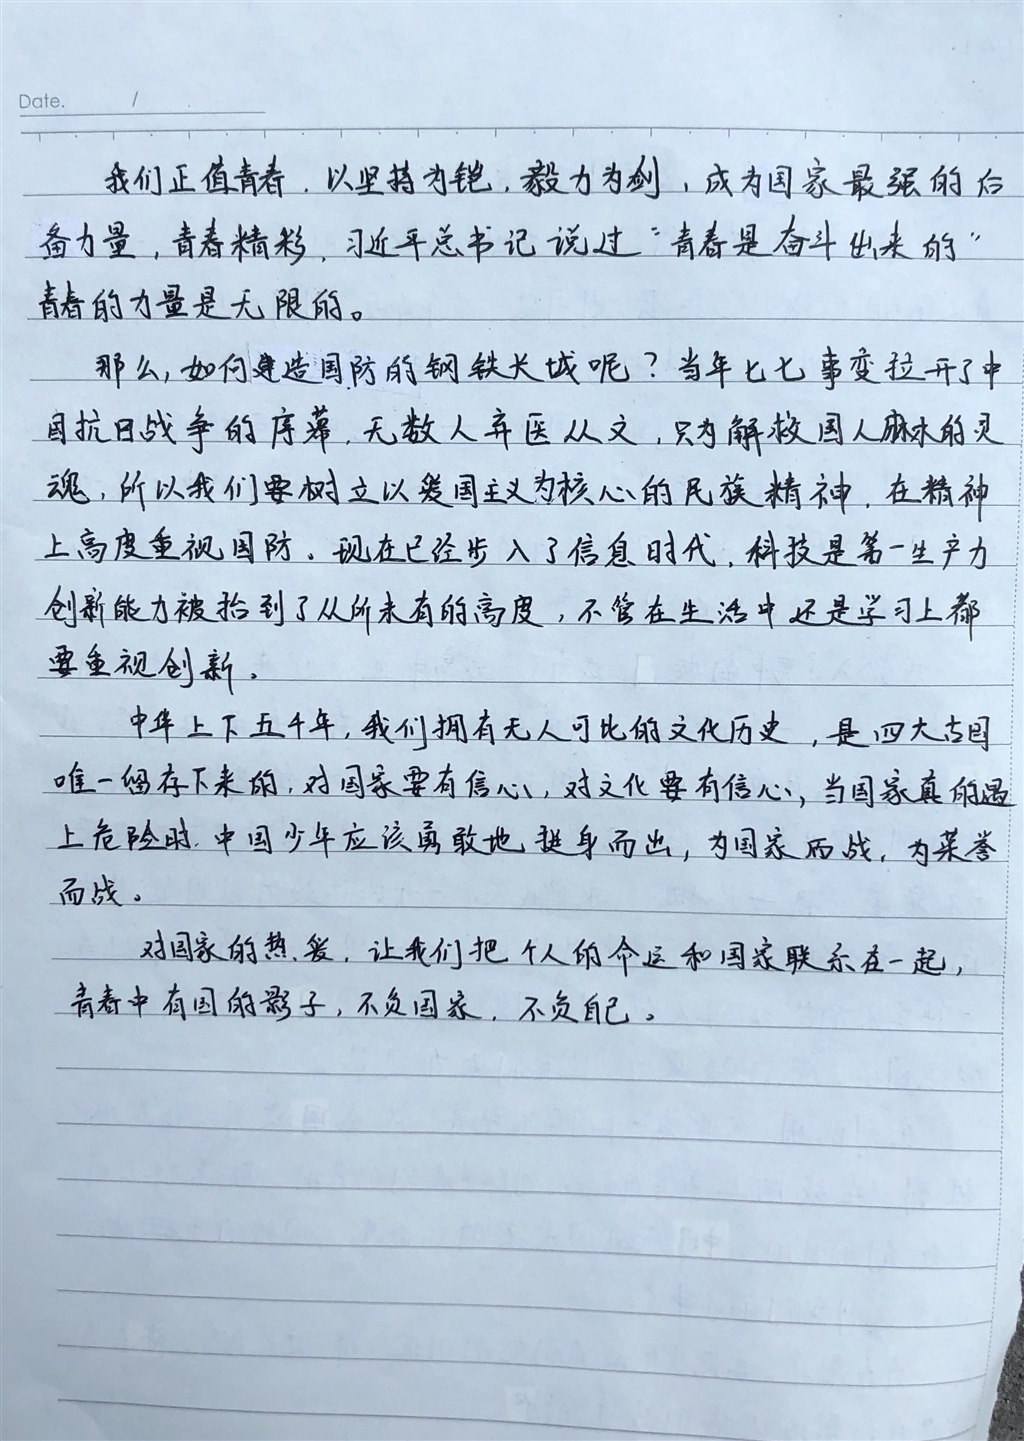 Date. /
我们正值青春，以坚持为铠，毅力为剑，成为国家最强的后
备力量，青春精彩，习近平总书记说过“青春是奋斗出来的”
青春的力量是无限的。
那么，如何建造国防的钢铁长城呢？当年七七事变拉开了中
国抗日战争的序幕，无数人弃医从文，只为解救国人麻木的灵
魂，所以我们要树立以爱国主义为核心的民族精神，在精神
上高度重视国防。现在已经步入了信息时代，科技是第一生产力
创新能力被抬到了从所未有的高度，不管在生活中还是学习上都
要重视创新。
中华上下五千年，我们拥有无人可比的文化历史，是四大古国
唯一留存下来的，对国家要有信心，对文化要有信心，当国家真的遇
上危险时，中国少年应该勇敢地挺身而出，为国家而战，为荣誉
而战。
对国家的热爱，让我们把个人的命运和国家联系在一起，
青春中有国的影子，不负国家，不负自己。